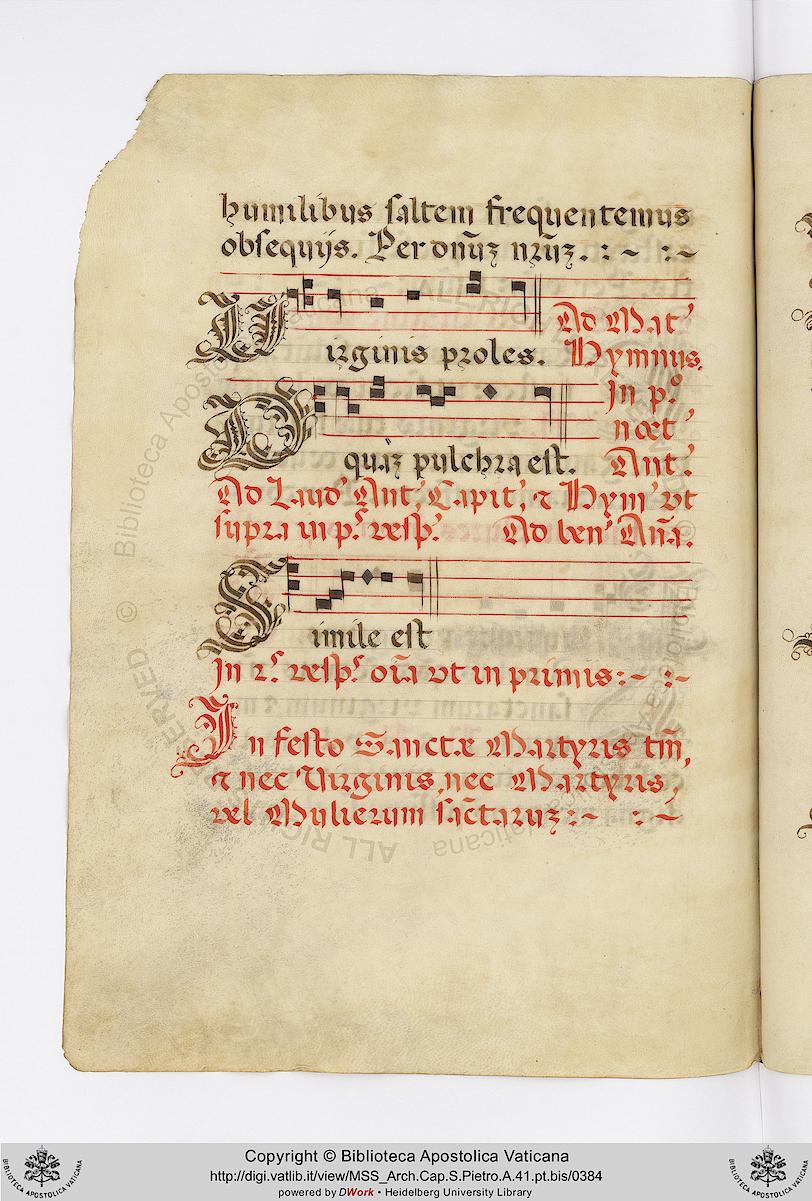 humilibus saltem frequentemus
obsequijs. Per donũʒ nrũʒ. : ~ : ~
Ad Mat'
Virginis proles. Hymnus.
In p.º
noct'
O quãʒ pulchra est. Ant.'
Ad Laud' Ant.' Capit.' & Hym' vt
supra in p.ˢ vesp.' Ad ben' Anã.
Simile est
In 2.ˢ vesp.ˢ oĩa vt in primis : ~ : ~
In festo Sanctæ Martyris tm̃,
& nec Virginis, nec Martyris,
vel Mulierum sãctarũʒ : ~ : ~
© Biblioteca Apostolica Vaticana ALL RIGHTS RESERVED
Copyright © Biblioteca Apostolica Vaticana
http://digi.vatlib.it/view/MSS_Arch.Cap.S.Pietro.A.41.pt.bis/0384
powered by DWork • Heidelberg University Library
BIBLIOTECA APOSTOLICA VATICANA
BIBLIOTECA APOSTOLICA VATICANA